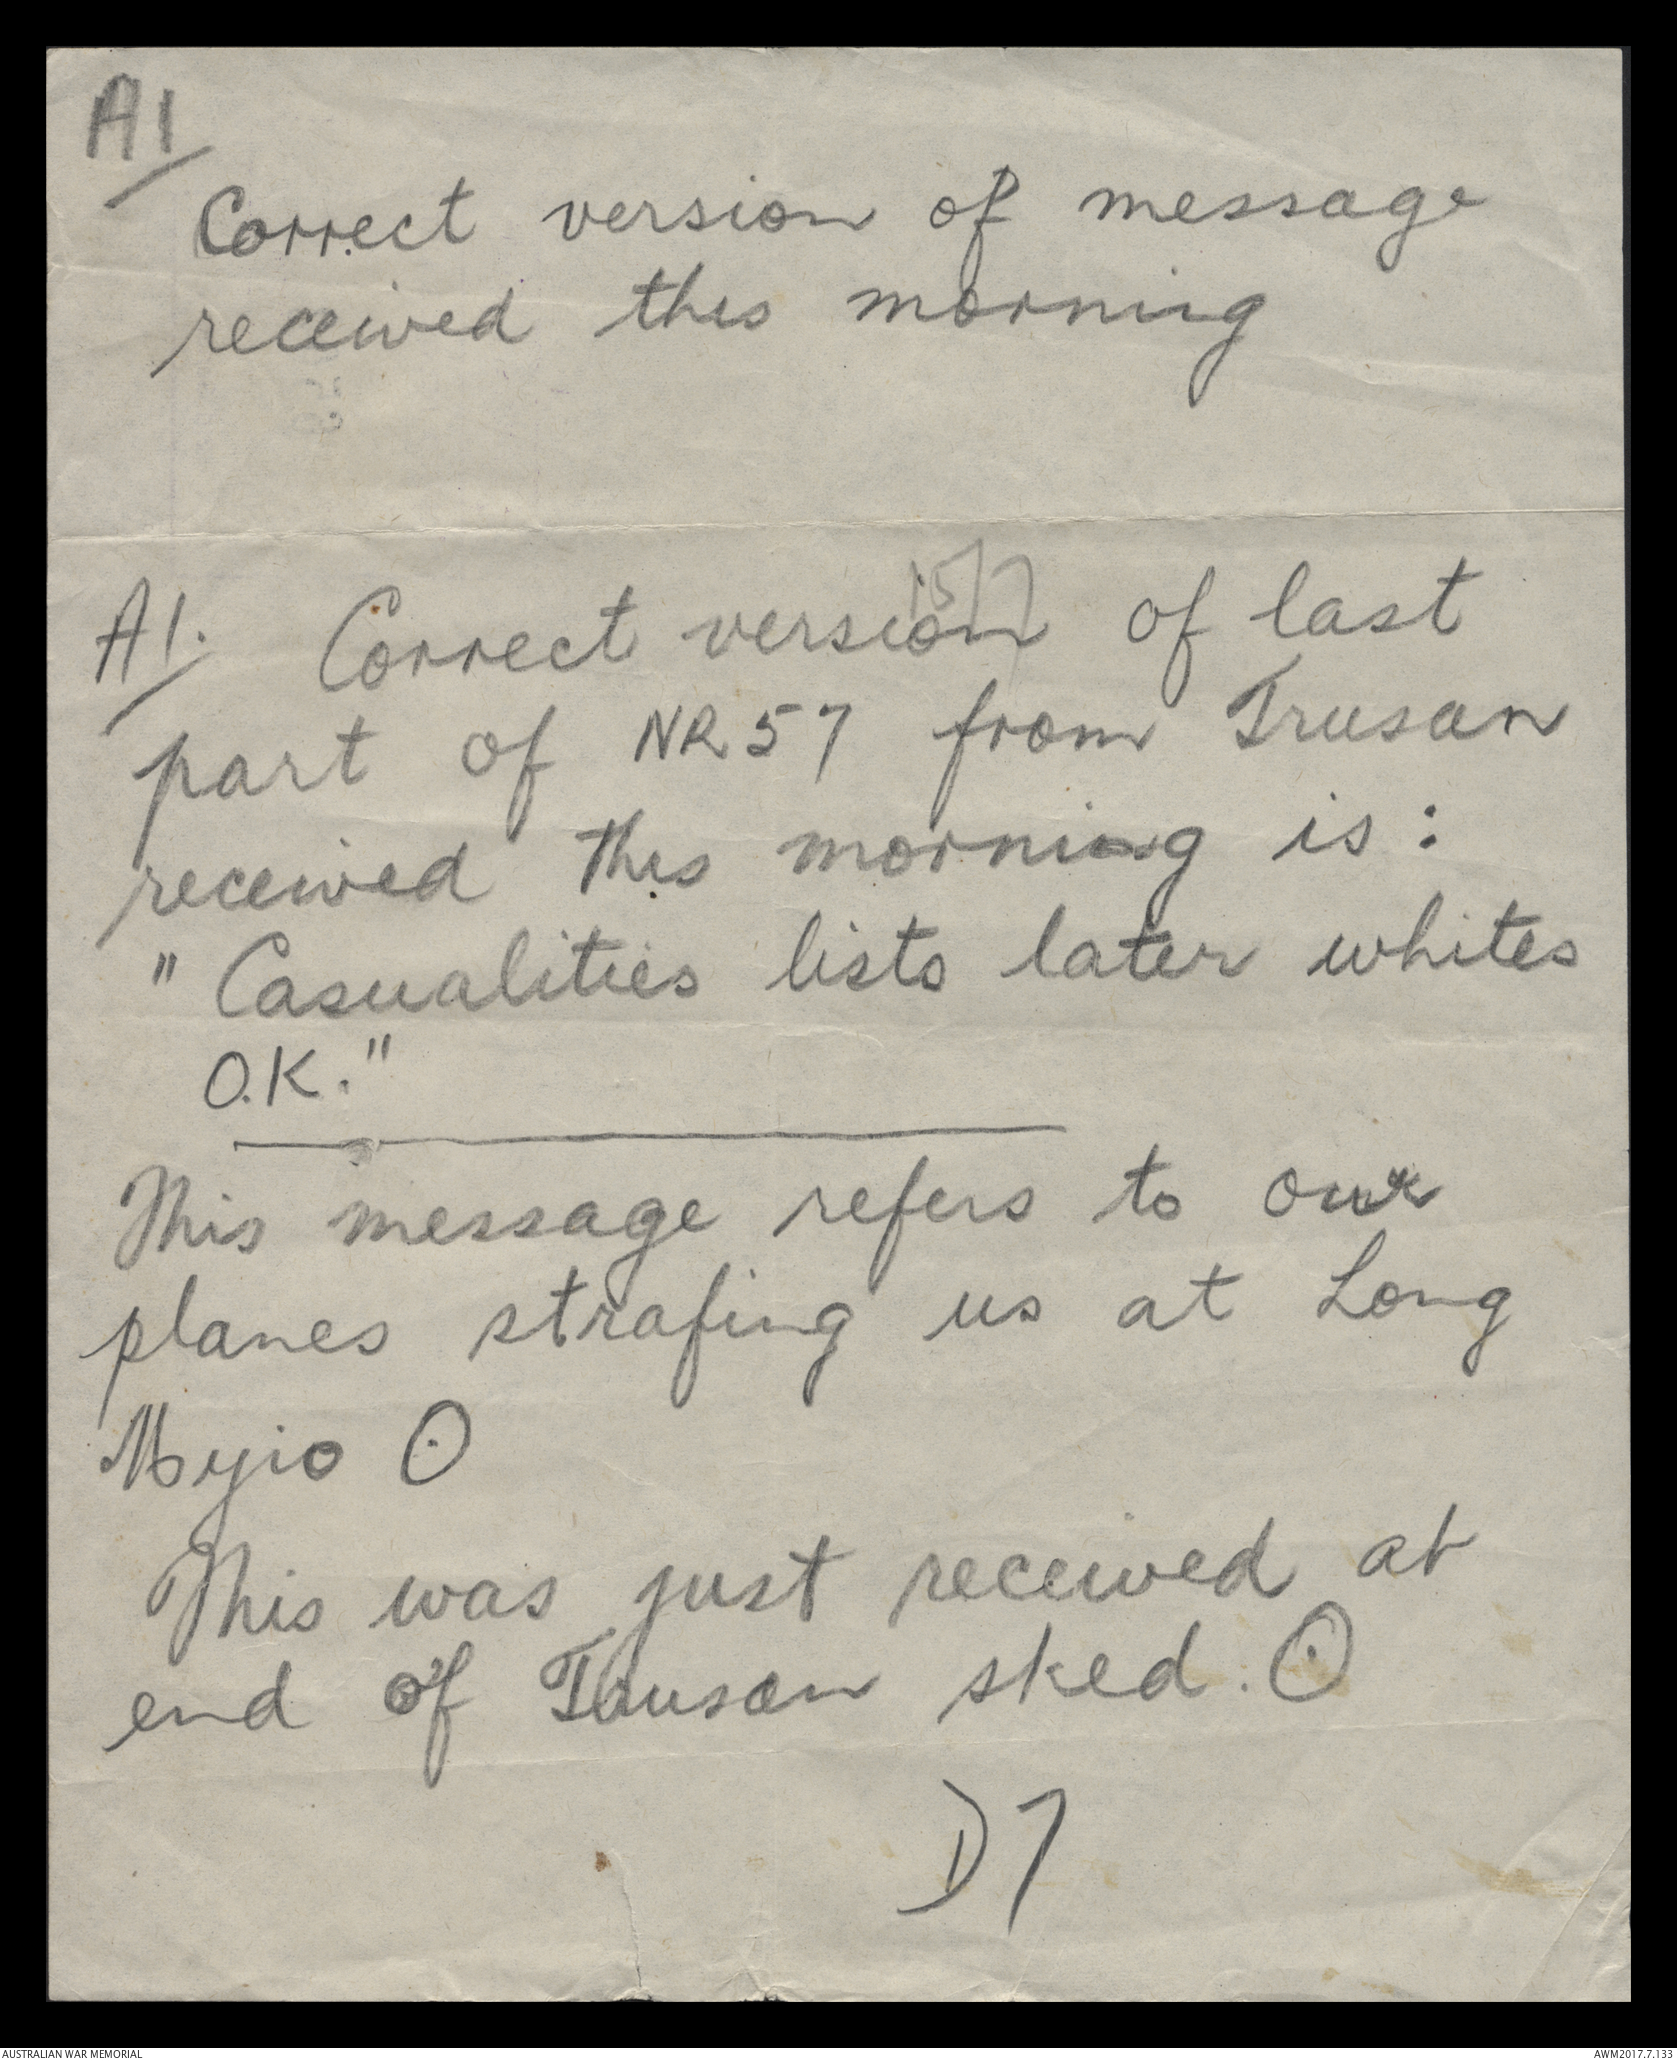 A1
Correct version of message
received this morning
15/7
A1. Correct version of last
part of NR 57 from Trusan
received this morning is:
" Casualities lists later whites
O.K."
This message refers to our
planes strafing us at Long
Myio O
This was just received at
end of Trusan sked. O
D7
AUSTRALIAN WAR MEMORIAL
AWM2017.7.133